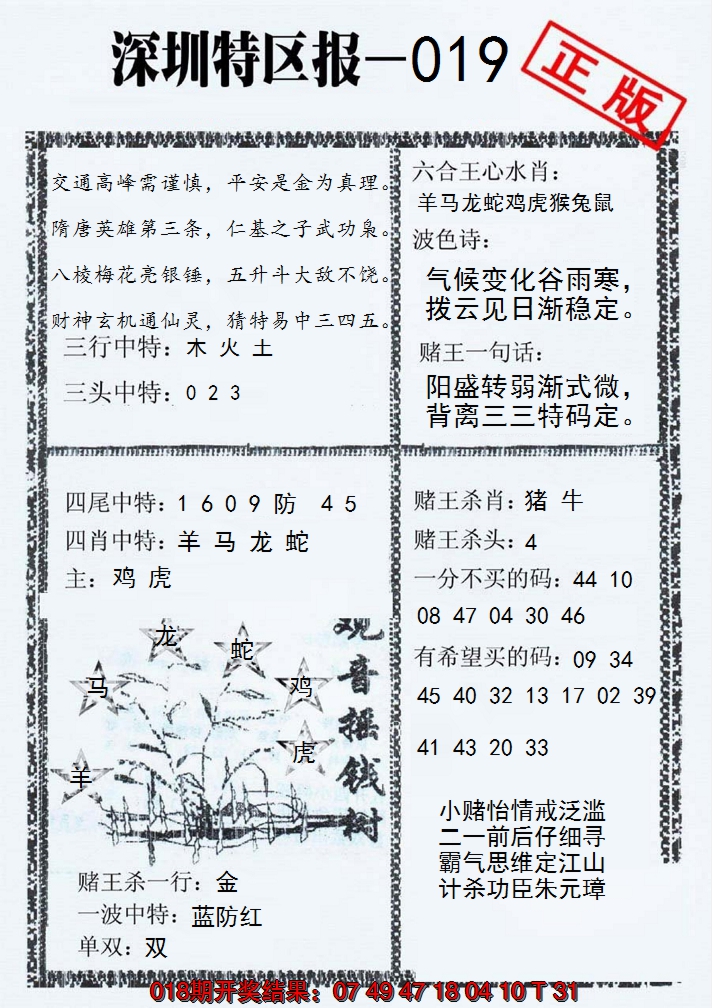 深圳特区报—019
正版
交通高峰需谨慎，平安是金为真理。
隋唐英雄第三条，仁基之子武功枭。
八棱梅花亮银锤，五升斗大敌不饶。
财神玄机通仙灵，猜特易中三四五。
三行中特：木 火 土
三头中特：0 2 3
六合王心水肖：
羊马龙蛇鸡虎猴兔鼠
波色诗：
气候变化谷雨寒，
拨云见日渐稳定。
赌王一句话：
阳盛转弱渐式微，
背离三三特码定。
四尾中特：1 6 0 9 防 4 5
四肖中特：羊 马 龙 蛇
主：鸡 虎
龙
蛇
马
鸡
虎
羊
观音摇钱树
赌王杀一行：金
一波中特：蓝防红
单双：双
赌王杀肖：猪 牛
赌王杀头：4
一分不买的码：44 10
08 47 04 30 46
有希望买的码：09 34
45 40 32 13 17 02 39
41 43 20 33
小赌怡情戒泛滥
二一前后仔细寻
霸气思维定江山
计杀功臣朱元璋
018期开奖结果：07 49 47 18 04 10 T 31